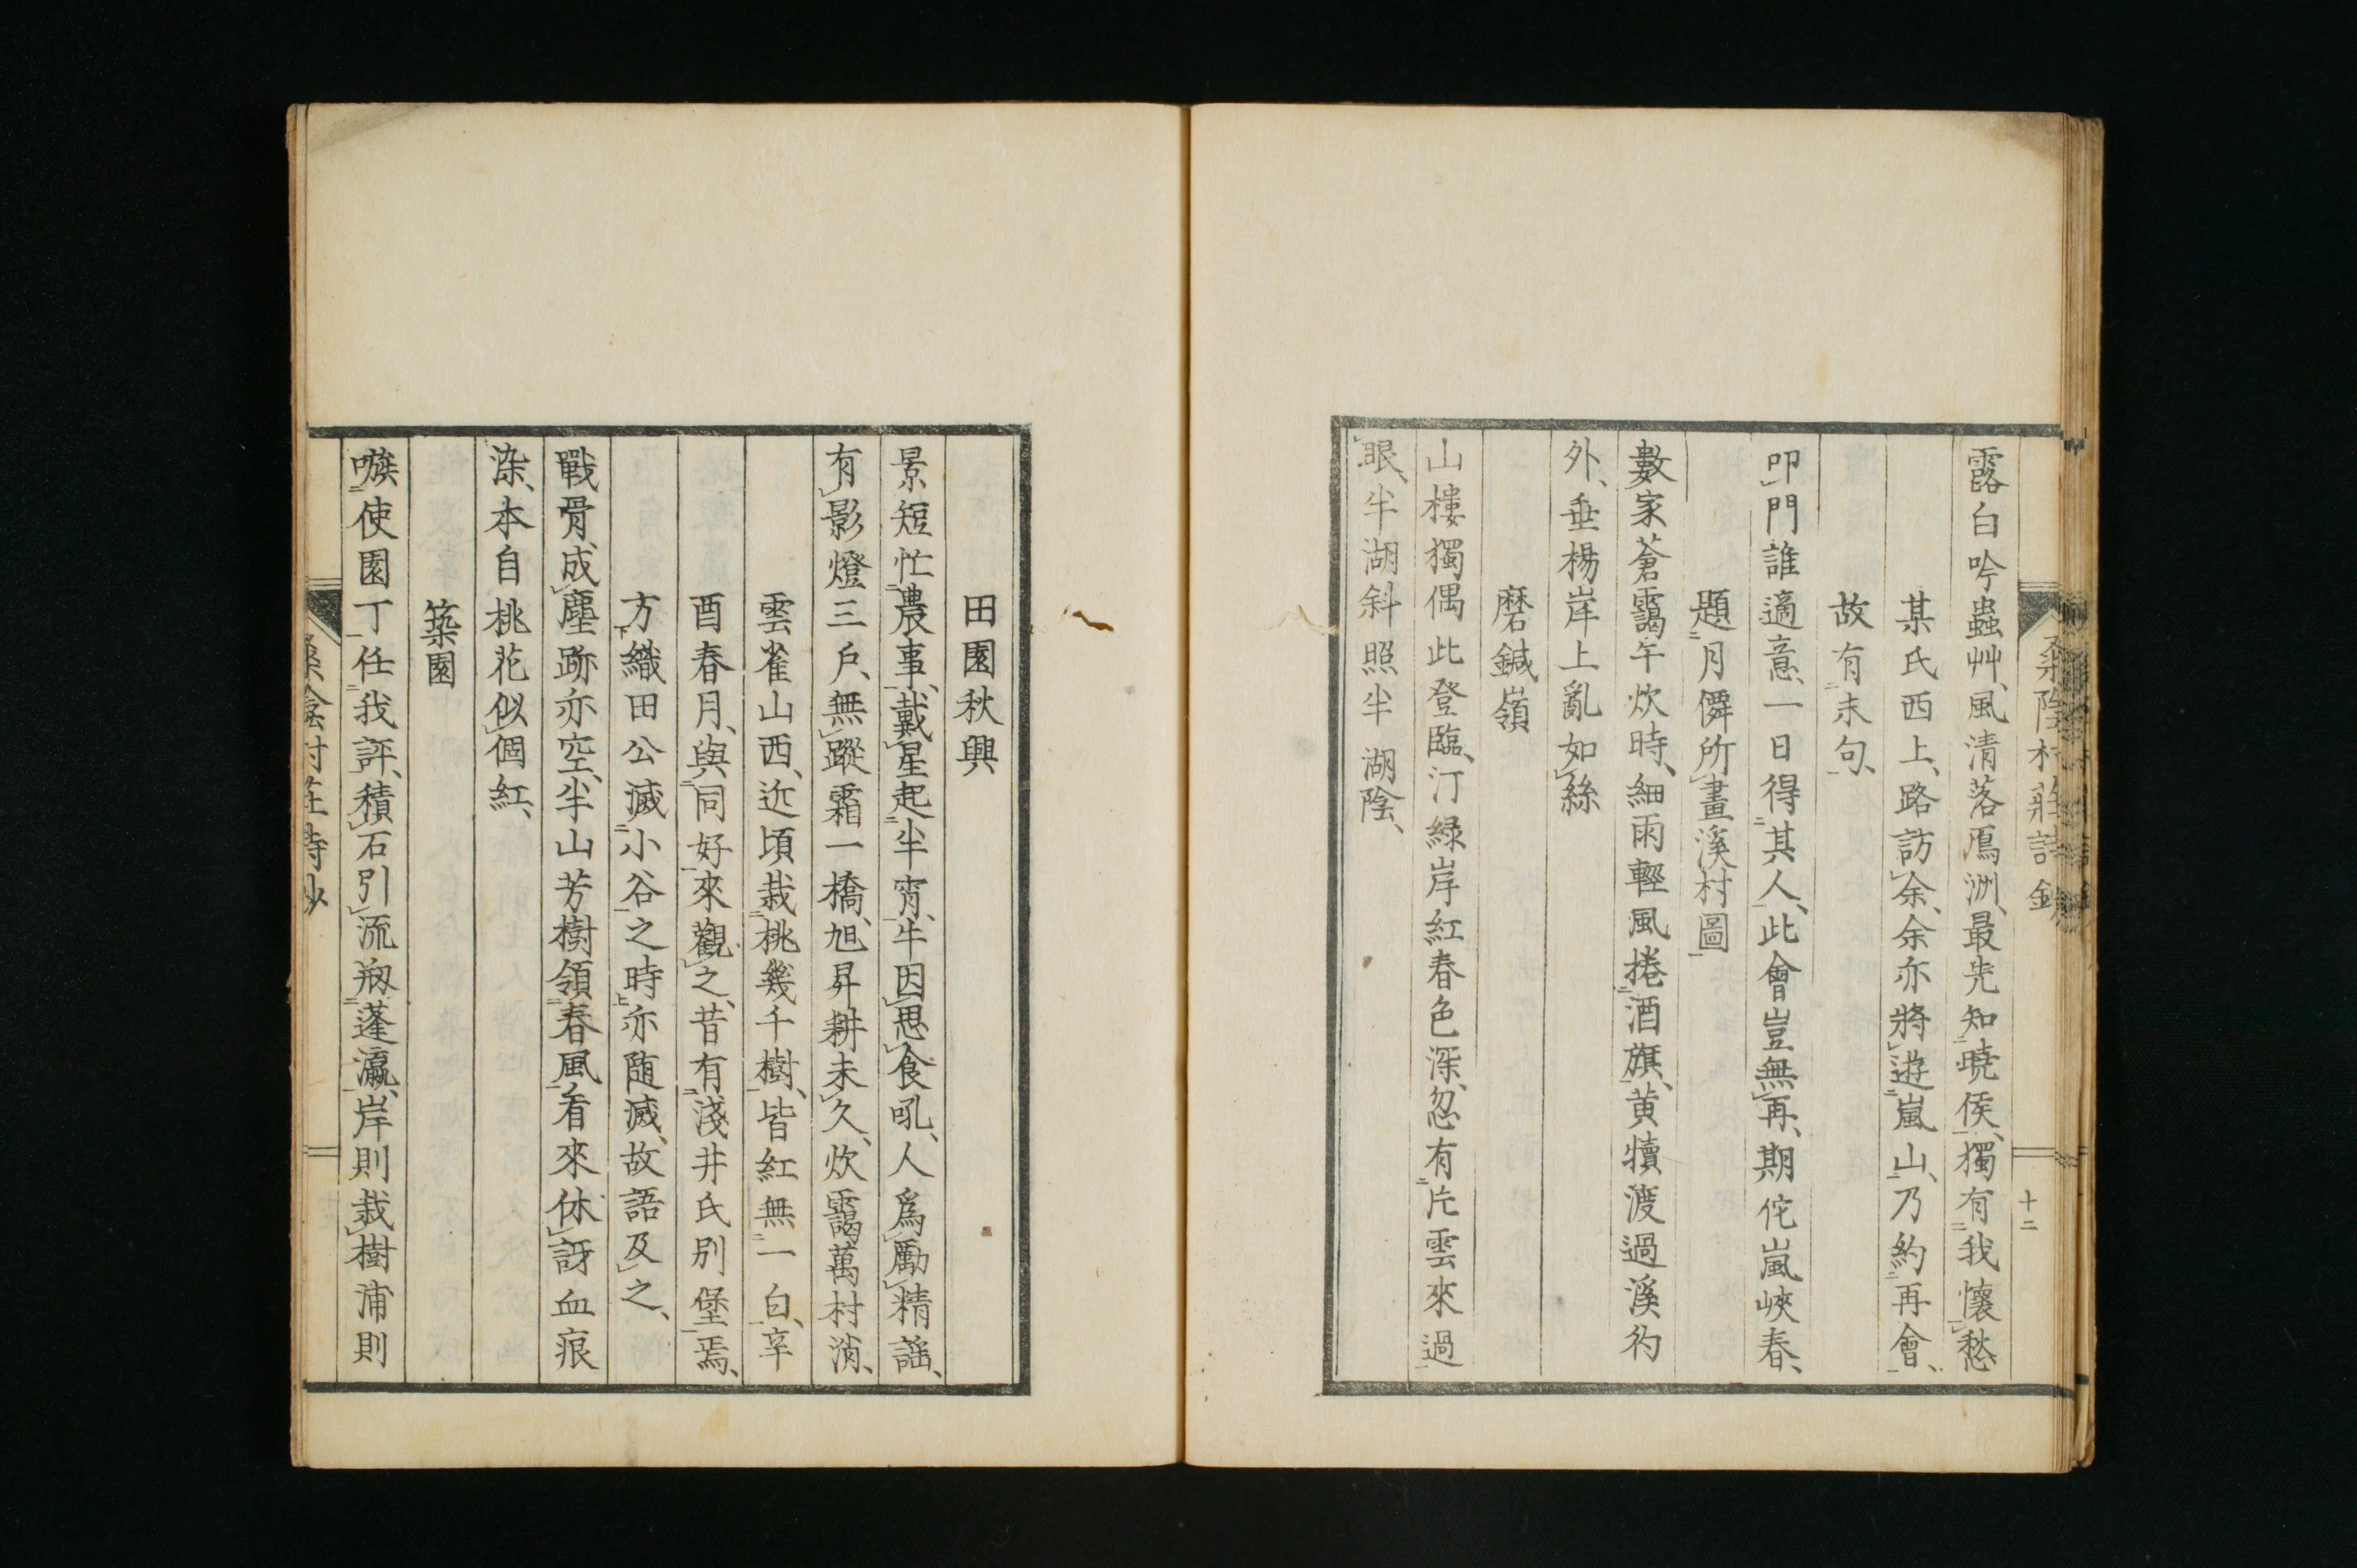 桑陰村莊詩鈔
十二
露白吟蟲艸、風清落鴈洲、最先知曉候、獨有我懷愁
某氏西上、路訪余、余亦將遊嵐山、乃約再會、
故有末句、
叩門誰適意、一日得其人、此會豈無再、期佗嵐峽春、
題月僲所畫溪村圖
數家蒼靄午炊時、細雨輕風捲酒旗、黃犢渡過溪彴
外、垂楊岸上亂如絲
磨鍼嶺
山樓獨偶此登臨、汀緑岸紅春色深、忽有片雲來過
眼、半湖斜照半湖陰、
田園秋興
景短忙農事、戴星起半宵、牛因思食吼、人爲勵精謡、
有影燈三戶、無蹤霜一橋、旭昇耕未久、炊靄萬村消、
雲雀山西、近頃栽桃幾千樹、皆紅無一白、辛
酉春月、與同好來觀之、昔有淺井氏別堡焉、
方織田公滅小谷之時亦随滅、故語及之、
戰骨成塵跡亦空、半山芳樹領春風、看來休訝血痕
染、本自桃花似個紅、
築園
嗾使園丁任我評、積石引流剏蓬瀛、岸則栽樹浦則
桑陰村莊詩鈔